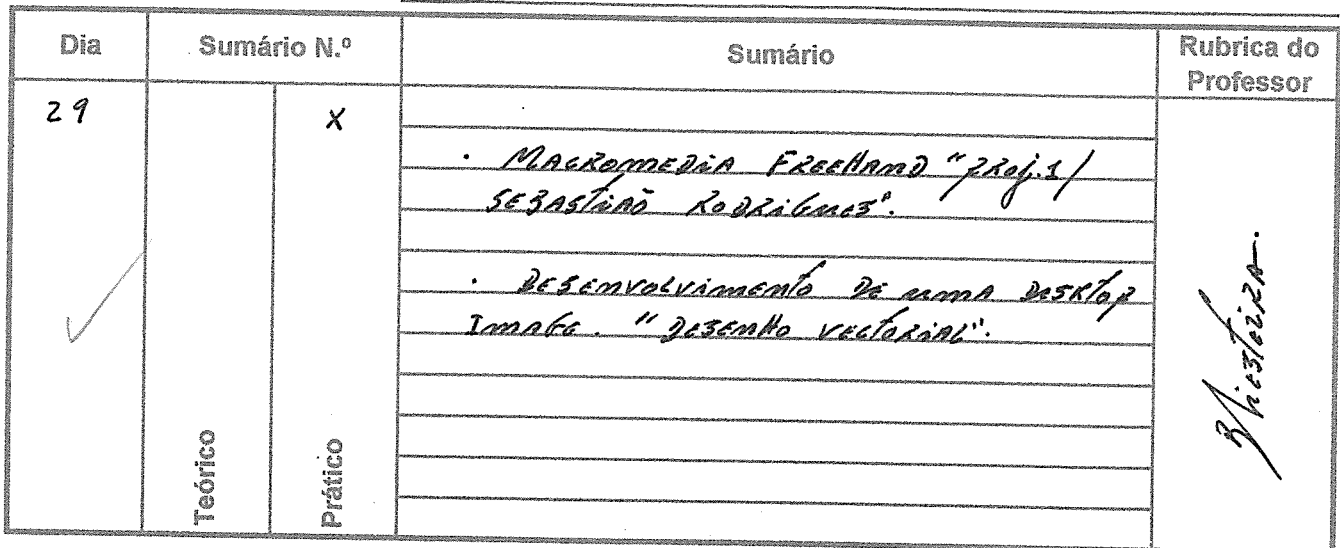 Dia Sumário N.º Sumário Rubrica do Professor
29 X
. MACROMEDIA FREEHAND "PROJ.1/
SEBASTIÃO RODRIGUES".
. DESENVOLVIMENTO DE UMA DESKTOP
IMAGE. "DESENHO VECTORIAL".
Teórico
Prático